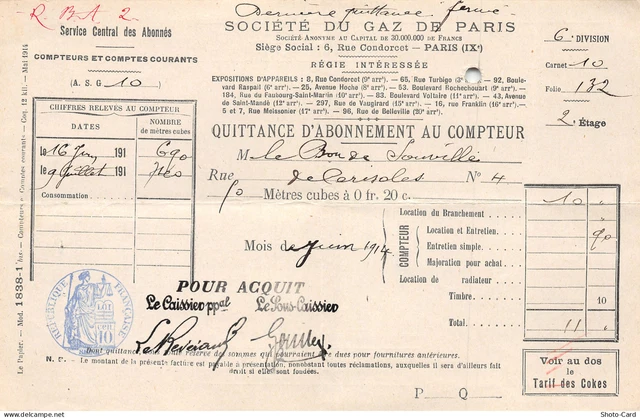 R. B A 2
Dernière quittance ferme
Service Central des Abonnés
SOCIÉTÉ DU GAZ DE PARIS
SOCIÉTÉ ANONYME AU CAPITAL DE 30.000.000 DE FRANCS
Siège Social : 6, Rue Condorcet - PARIS (IXe)
6 DIVISION
COMPTEURS ET COMPTES COURANTS
RÉGIE INTÉRESSÉE
Carnet 10
(A. S G) 10
Folio 132
EXPOSITIONS D'APPAREILS : 8, Rue Condorcet (9e arrt) — 65, Rue Turbigo (3e arrt) — 92, Boule-
vard Raspail (6e arrt) — 25, Avenue Hoche (8e arrt) — 53, Boulevard Rochechouart (9e arrt) —
184, Rue du Faubourg-Saint-Martin (10e arrt) — 83, Boulevard Voltaire (11e arrt) — 43, Avenue
de Saint-Mandé (12e arrt) — 297, Rue de Vaugirard (15e arrt) — 16, rue Franklin (16e arrt) —
5 et 7, Rue Meissonier (17e arrt) — 96, Rue de Belleville (20e arrt)
2e Étage
CHIFFRES RELEVÉS AU COMPTEUR
DATES
NOMBRE de mètres cubes
QUITTANCE D'ABONNEMENT AU COMPTEUR
Le 16 Juin 191 690
M le Bon de Souville
Le 9 Juillet 191 740
Rue de Cerisoles No 4
Consommation
50 Mètres cubes à 0 fr. 20 c. 10
COMPTEUR
Location du Branchement
Location et Entretien 90
Entretien simple
Majoration pour achat
Location de radiateur
Mois de Juin 1914
Timbre 10
Total 11
POUR ACQUIT
Le Caissier ppal Le Sous-Caissier
RÉPUBLIQUE FRANÇAISE
10
Dont quittance, sous réserve des sommes qui pourraient être dues pour fournitures antérieures.
N. B. - Le montant de la présente facture est payable à présentation, nonobstant toutes réclamations, auxquelles il sera d'ailleurs fait
droit si elles sont fondées.
P Q
Voir au dos
le
Tarif des Cokes
Le Papier. - Mod. 1838-1 bis. - Compteurs et Comptes courants - Coq. 12 kil. - Mai 1914
Photo-Carto.com